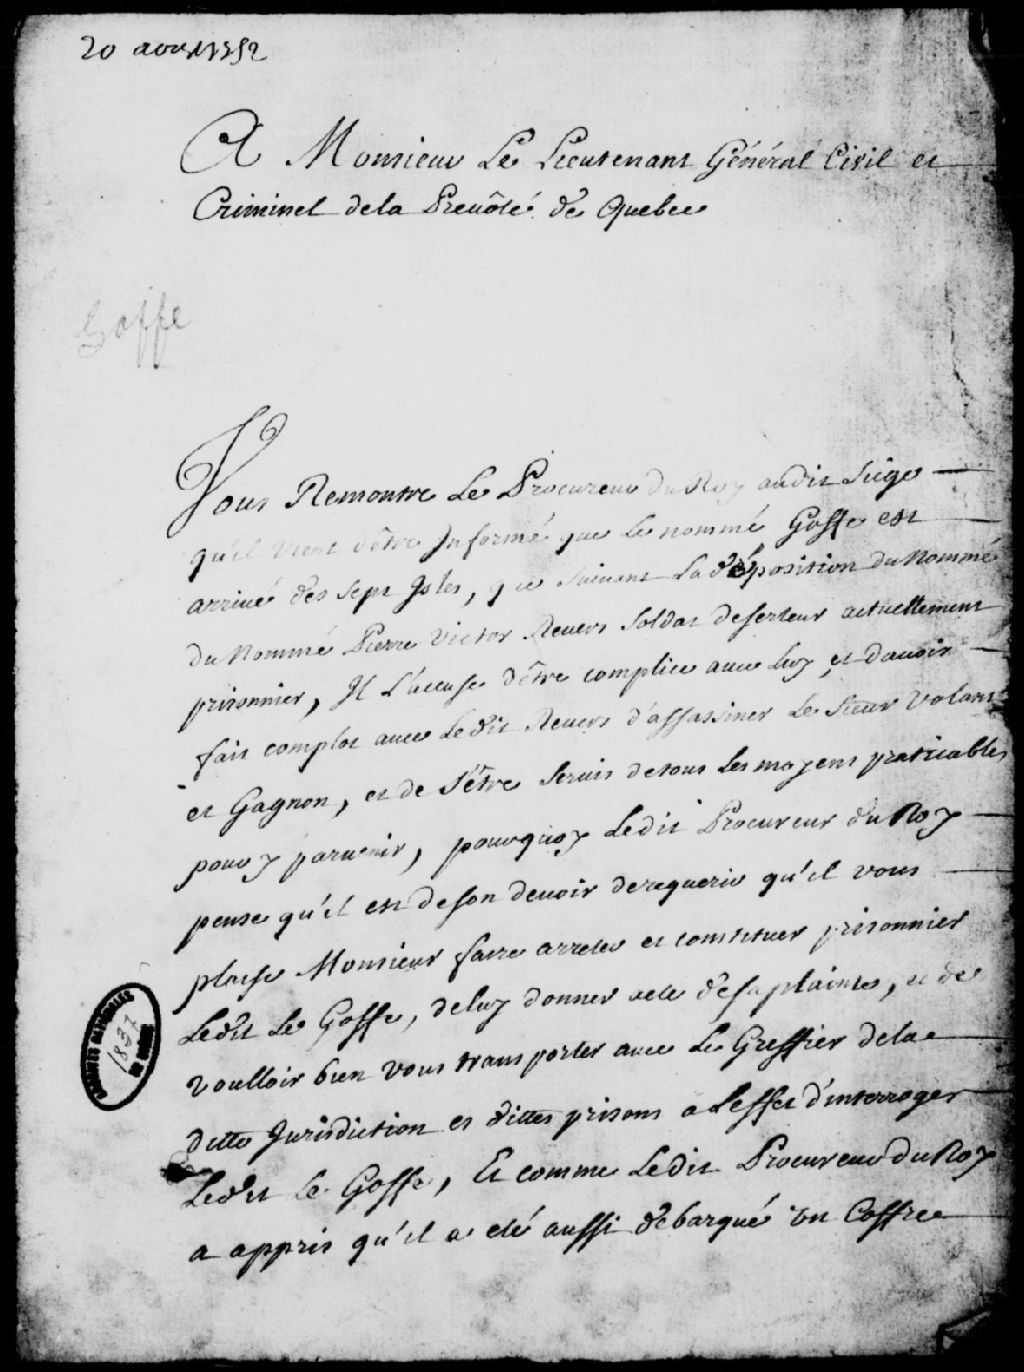 20 aoust 1752
A Monsieur Le Lieutenant Général Civil et
Criminel dela Prevôté de Quebec
Goffe
Vous Remontre Le Procureur du Roy audit Siége
qu'il vient d'être Informé que Le nommé Goffe est
arrivé des Sept Isles, que suivant La déposition du Nommé
du Nommé Pierre Victor Revers Soldat deserteur actuellement
prisonnier, Il L'accuse d'être complice avec Luy et d'avoir
fait complot avec Ledit Revers d'assassiner Le Sieur Volant
et Gagnon, et de s'être servis detous Les moyens praticables
pour y parvenir, pourquoy Ledit Procureur du Roy
pense qu'il est deson devoir derequerir qu'il vous
plaise Monsieur faire arreter et constituer prisonnier
Ledit Le Goffe, deluy donner acte desa plainte, et de
voulloir bien vous transporter avec Le Greffier dela
ditte Jurisdiction es dittes prisons a Leffet d'interroger
Ledit Le Goffe, Et comme Ledit Procureur du Roy
a appris qu'il a eté aussi debarqué un Coffre
1837